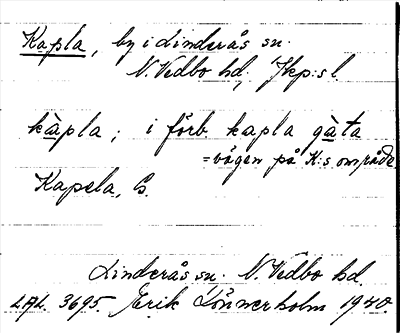 Kapla, by i Linderås sn.
N. Vedbo hd, Jkp:s l.
kàpla; i förb. kapla gàta
=vägen på K:s område.
Kapela, G.
Linderås sn. N. Vedbo hd.
LAL. 3695. Erik Lönnerholm 1940.